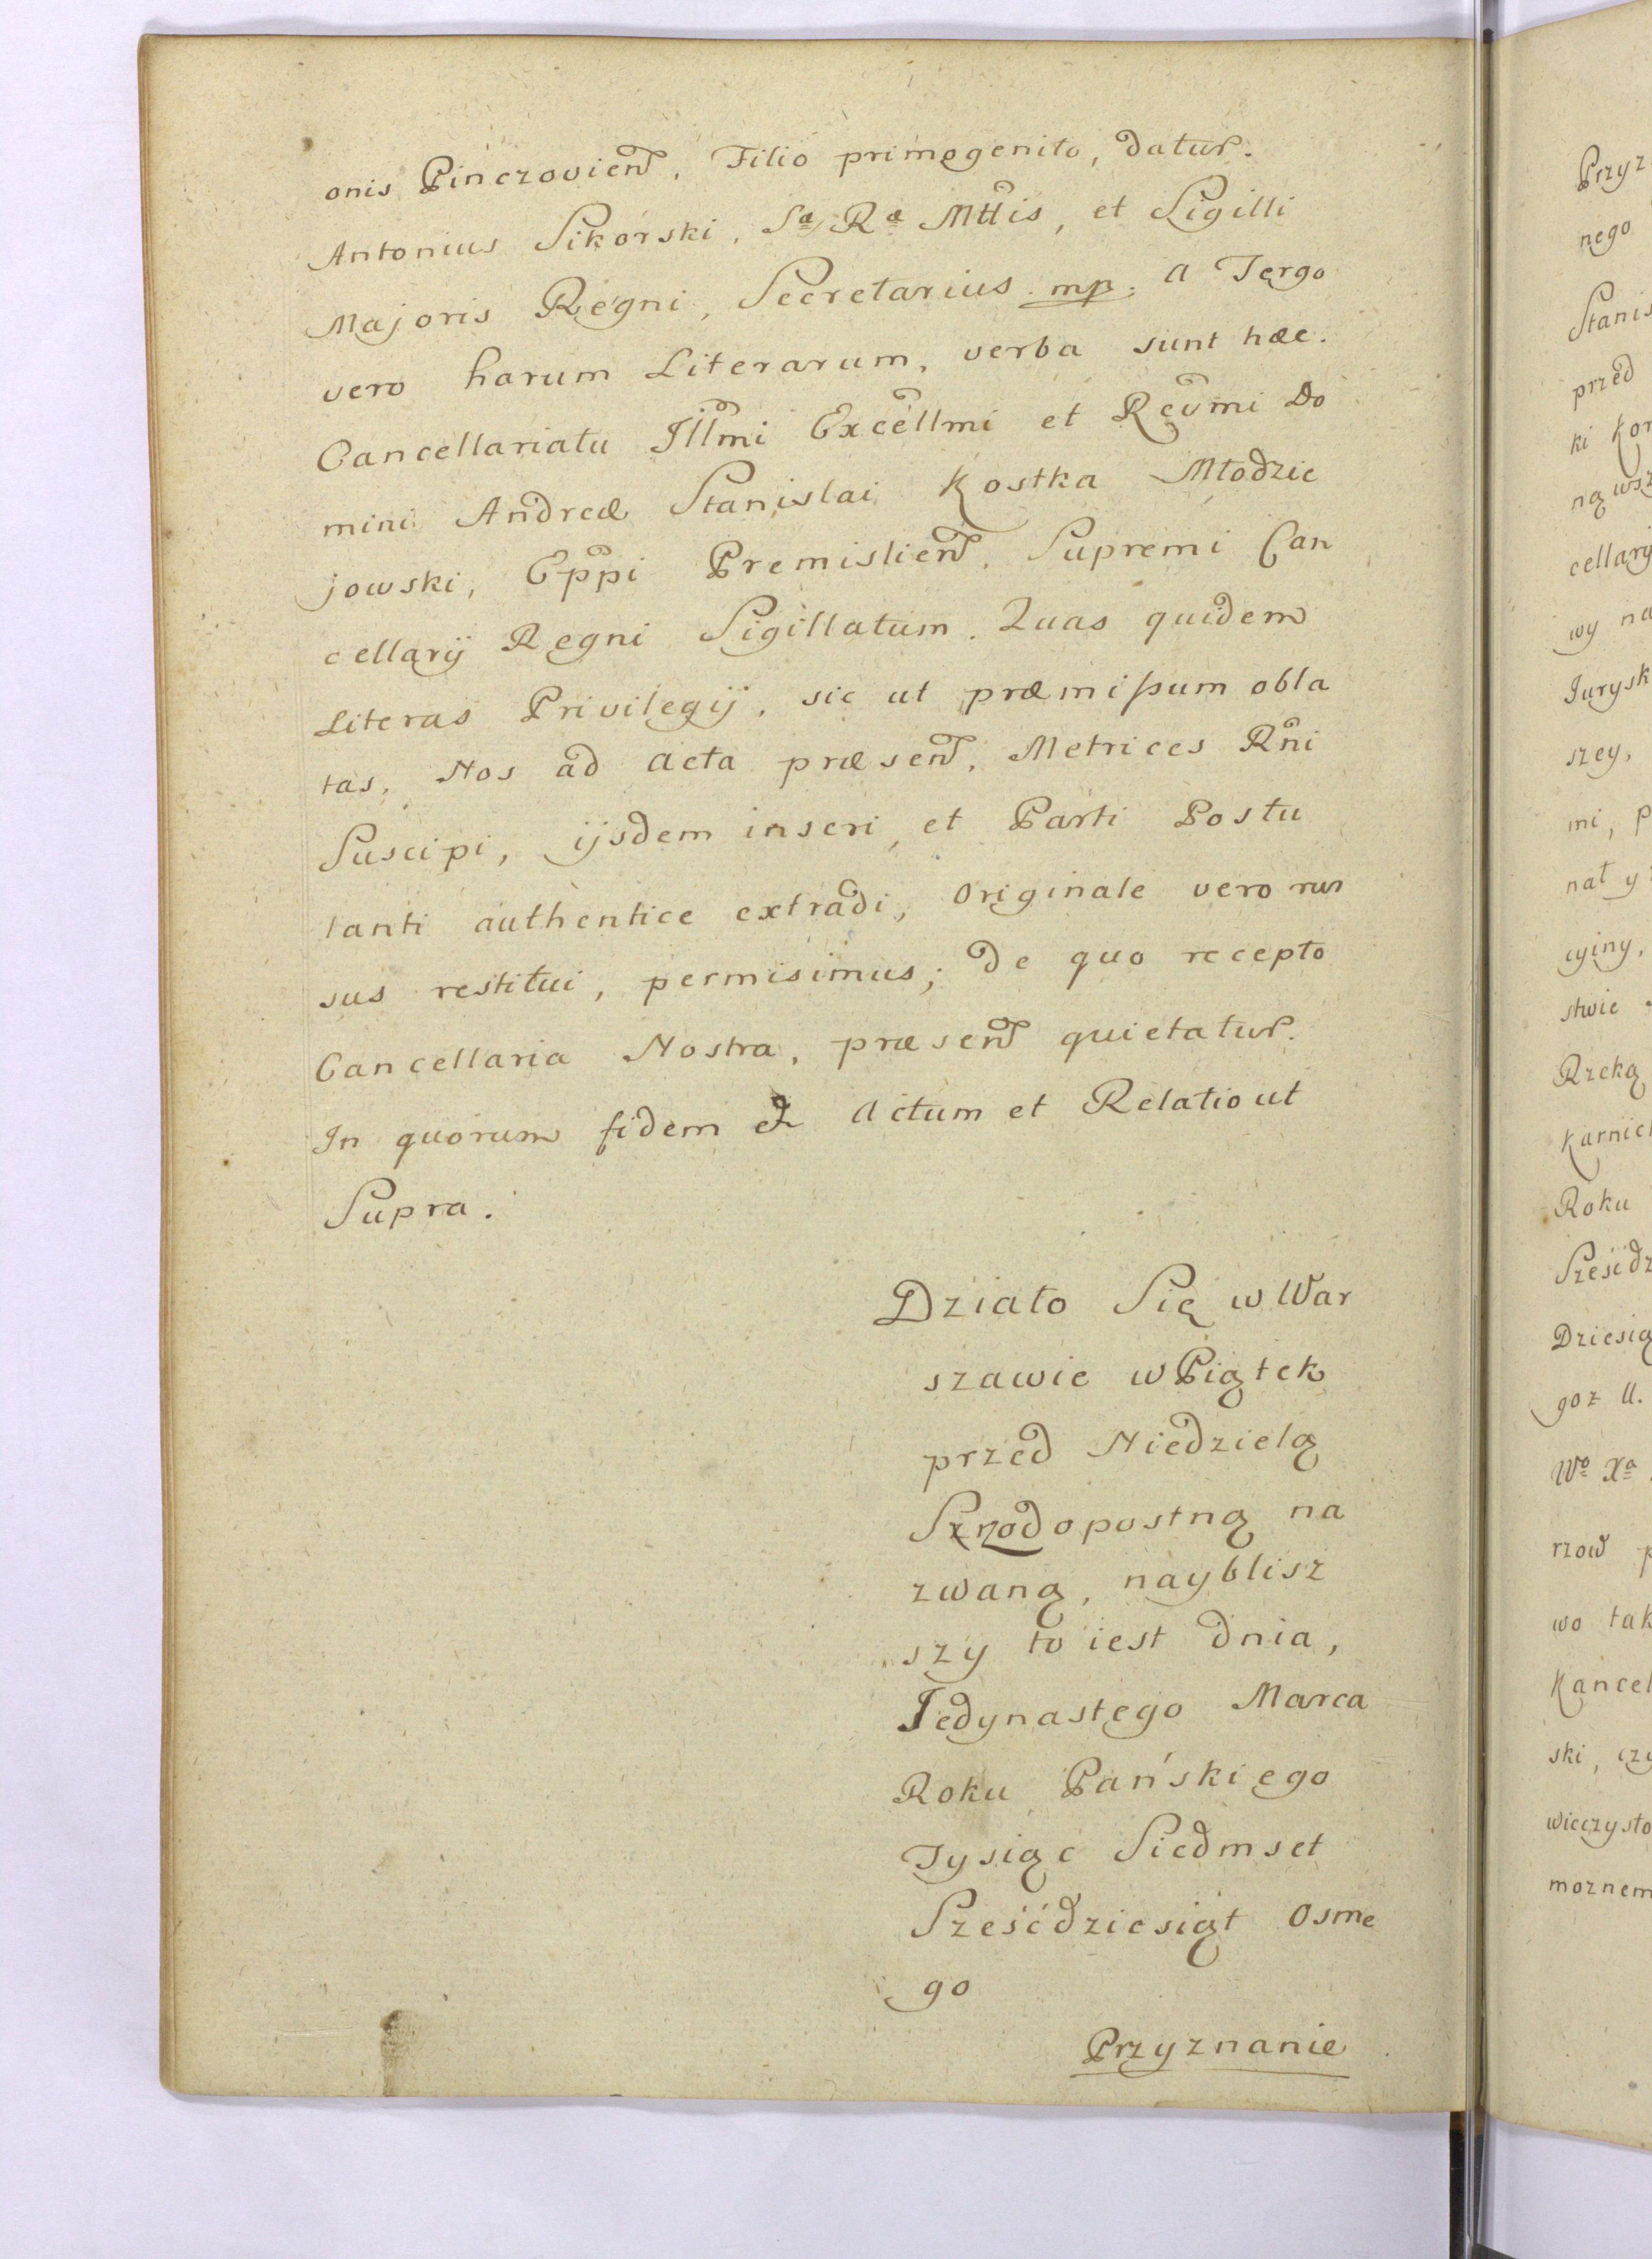 onis Pinczovien̄, Filio primogenito, datur.
Antonius Sikorski, Sæ Ræ Mttis, et Sigilli
Majoris Regni, Secretarius mp. A Tergo
vero harum Literarum, verba sunt hæc.
Cancellariatu Illmi Excellmi et Revmi Do
mini Andreæ Stanislai Kostka Młodzie
jowski, Eppi Premislien̄, Supremi Can
cellarij Regni Sigillatum. Quas quidem
Literas Privilegij, sic ut præmißum obla
tas, Nos ad Acta præsen̄, Metrices Rñi
Suscipi, ijsdem inseri, et Parti Postu
lanti authentice extradi, Originale vero rur
sus restitui, permisimus; de quo recepto
Cancellaria Nostra, præsen̄ quietatur.
In quorum fidem & Actum et Relatio ut
Supra.
Działo Się w War
szawie w Piątek
przed Niedzielą
Szrodopostną na
zwaną, nayblisz
szy to iest dnia,
Jedynastego Marca
Roku Pańskiego
Tysiąc Siedmset
Sześćdziesiąt Osme
go
Przyznanie
Przyz
nego
Stanis
przed
ki Kor
ną wsz
cellary
wy na
Jurysk
szey,
mi, p
nał y
cyiny,
stwie
Rzeką
Karnic
Roku
Sześćdz
Dziesią
goz U.
Wo Xa
rzow p
wo tak
Kancel
ski, czy
wieczysto
moznem